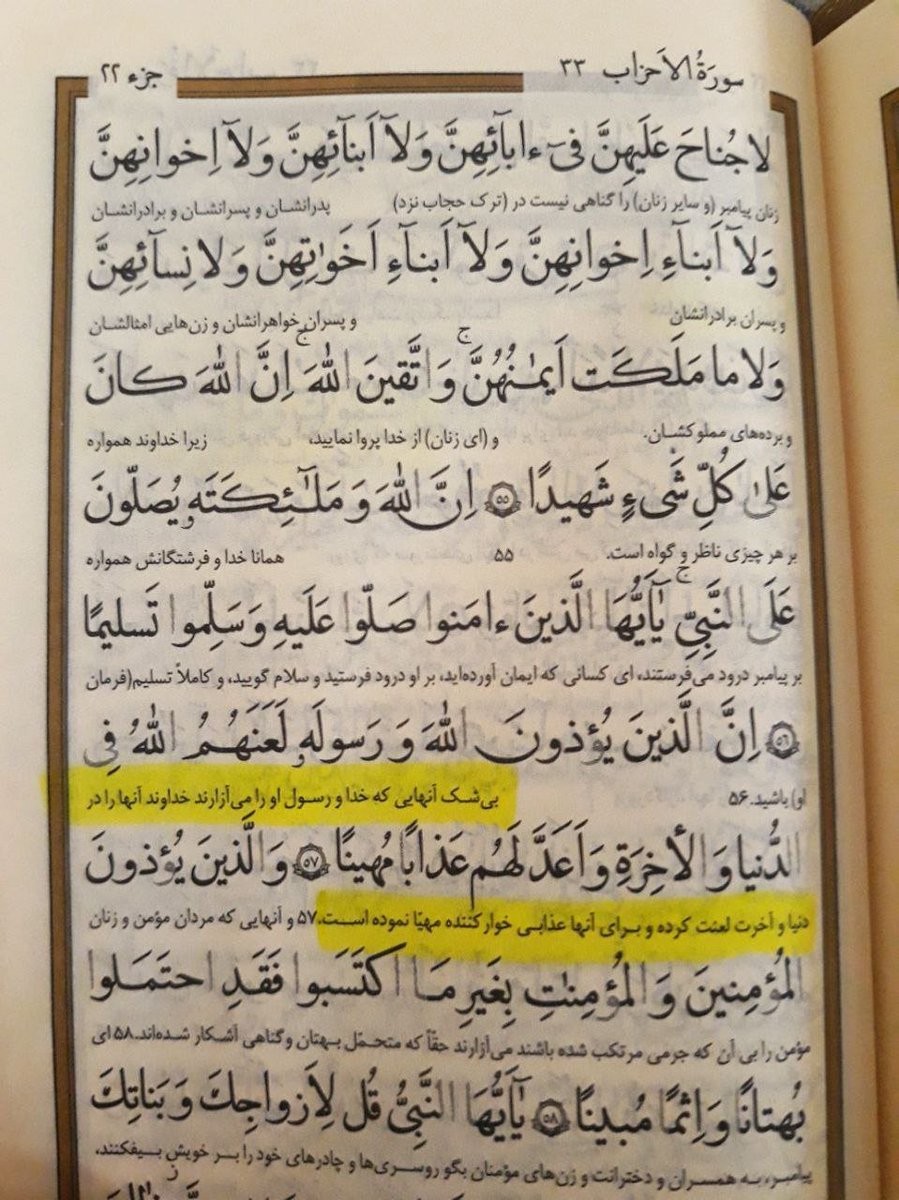 سورَةُ الاَحزاب ٣٣
جزء ٢٢
لا جُناحَ عَلَيهِنَّ فى ءابآئِهِنَّ وَلآ اَبنآئِهِنَّ وَلآ اِخوانِهِنَّ
زنان پیامبر (و سایر زنان) را گناهی نیست در (ترک حجاب نزد) پدرانشان و پسرانشان و برادرانشان
وَلآ اَبنآءِ اِخوانِهِنَّ وَلآ اَبنآءِ اَخَواتِهِنَّ وَلا نِسآئِهِنَّ
و پسران برادرانشان و پسران خواهرانشان و زن‌هایی امثالشان
وَلا ما مَلَكَت اَيمٰنُهُنَّ ۚ وَاتَّقينَ اللهَ ۚ اِنَّ اللهَ كانَ
و برده‌های مملوکشان. و (ای زنان) از خدا پروا نمایید، زیرا خداوند همواره
عَلىٰ كُلِّ شَىءٍ شَهيدًا ٥٥ اِنَّ اللهَ وَ مَلٰٓئِكَتَه يُصَلّونَ
بر هر چیزی ناظر و گواه است. ۵۵ همانا خدا و فرشتگانش همواره
عَلَى النَّبِىِّ ۚ يٰٓاَيُّهَا الَّذينَ ءامَنوا صَلّوا عَلَيهِ وَسَلِّموا تَسليمًا
بر پیامبر درود می‌فرستند، ای کسانی که ایمان آورده‌اید، بر او درود فرستید و سلام گویید، و کاملاً تسلیم(فرمان
٥٦ اِنَّ الَّذينَ يُؤذونَ اللهَ وَ رَسولَه لَعَنَهُمُ اللهُ فِى
او) باشید.۵۶ بی‌شک آنهایی که خدا و رسول او را می‌آزارند خداوند آنها را در
الدُّنيا وَالأخِرَةِ وَ اَعَدَّ لَهُم عَذابًا مُهينًا ٥٧ وَ الَّذينَ يُؤذونَ
دنیا و آخرت لعنت کرده و برای آنها عذابی خوار کننده مهیّا نموده است.۵۷ و آنهایی که مردان مؤمن و زنان
المُؤمِنينَ وَ المُؤمِنٰتِ بِغَيرِ مَا اكتَسَبوا فَقَدِ احتَمَلوا
مؤمن را بی آن که جرمی مرتکب شده باشند می‌آزارند حقّاً که متحمّل بهتان و گناهی آشکار شده‌اند.۵۸ ای
بُهتانًا وَ اِثمًا مُبينًا ٥٨ يٰٓاَيُّهَا النَّبِىُّ قُل لِاَزواجِكَ وَ بَناتِكَ
پیامبر، به همسران و دخترانت و زن‌های مؤمنان بگو روسری‌ها و چادرهای خود را بر خویش بیفکنند،